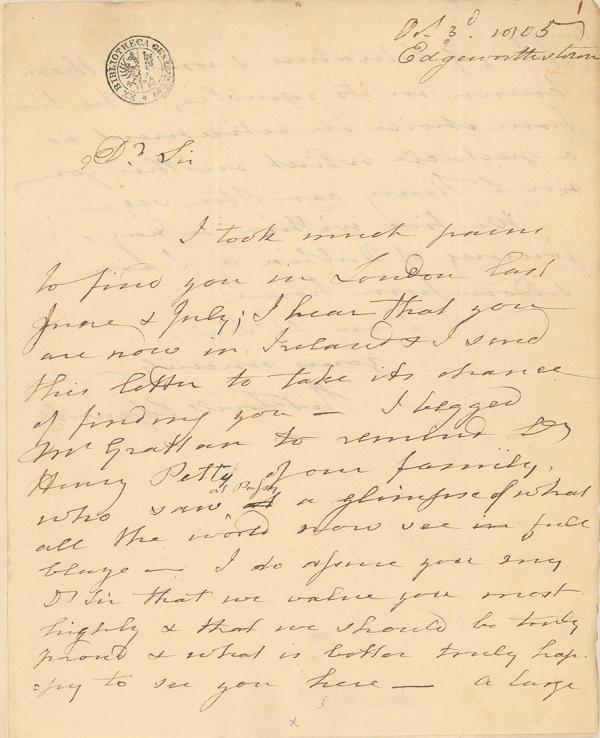 Oct. 3d. 1805
Edgeworthstown
EX BIBLIOTHECA
Dr. Sir
I took much pains
to find you in London last
June & July; I hear that you
are now in Ireland & I send
this letter to take its chance
of finding you — I begged
Mr Grattan to remind Ld
Henry Petty of our family,
at Paris
who saw a glimpse of what
all the world now see in full
blaze — I do assure you my
Dr Sir that we value you most
highly & that we should be truly
proud & what is better truly hap-
=py to see you here — a large